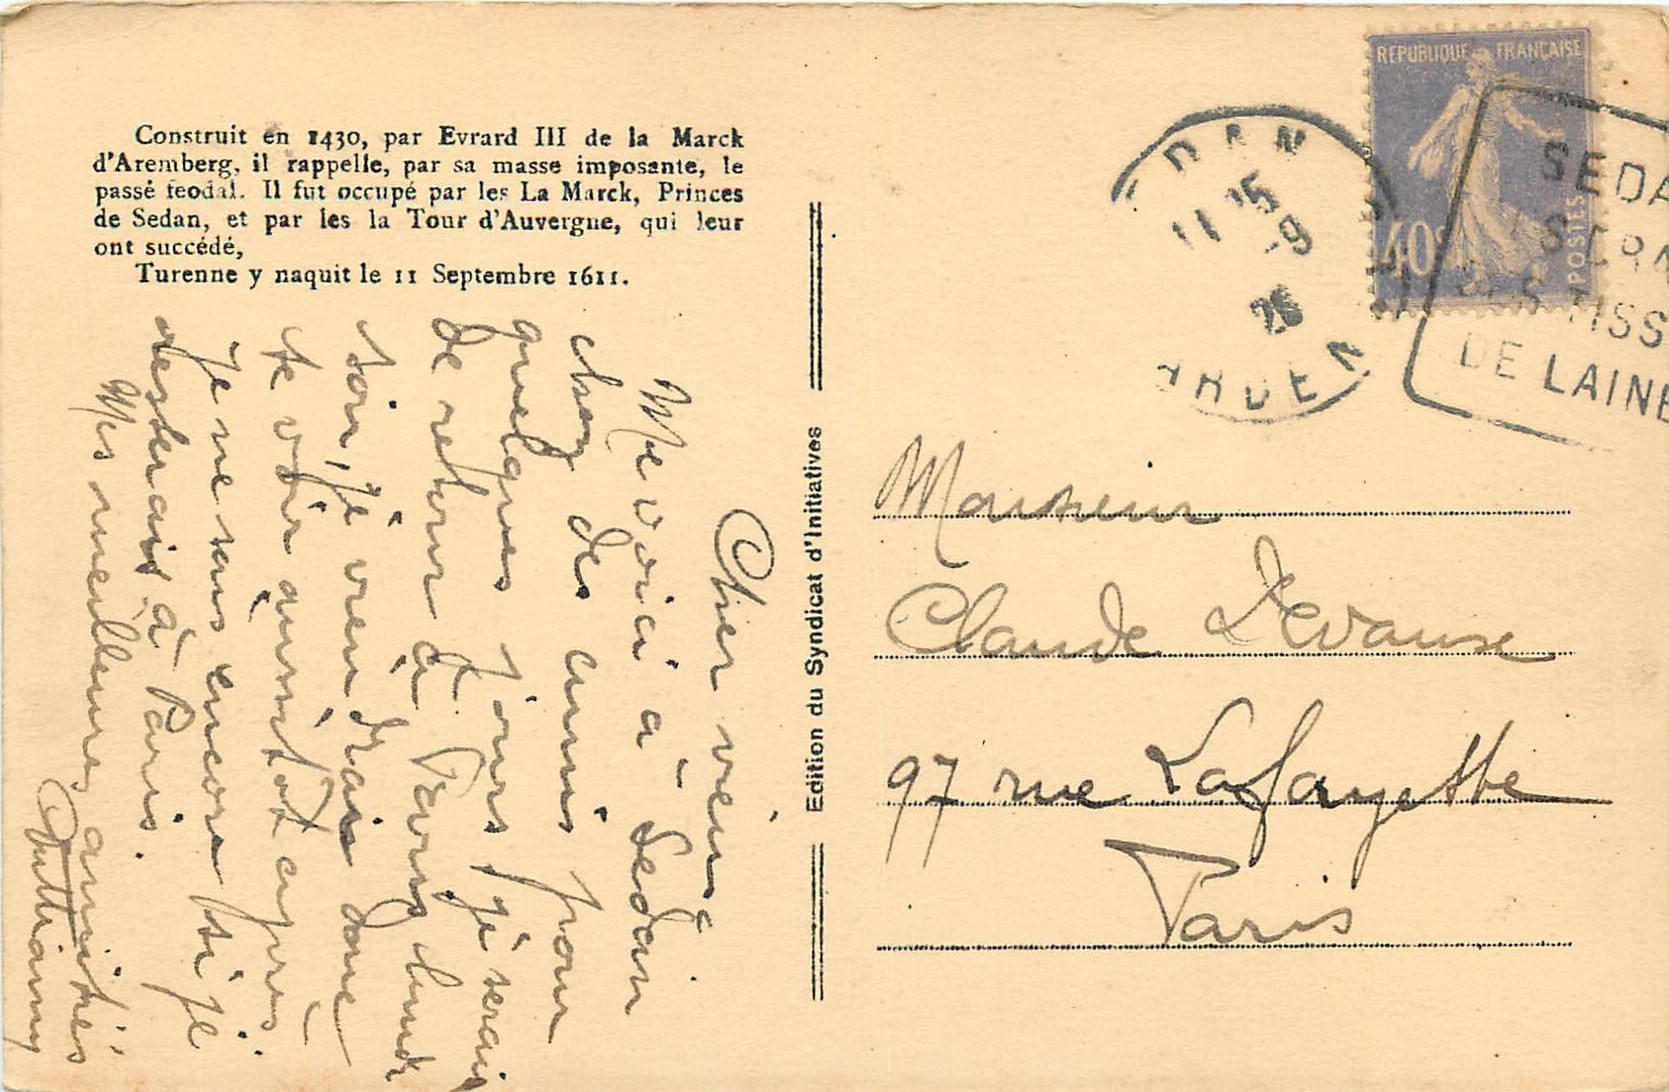 Construit en 1430, par Evrard III de la Marck
d'Aremberg, il rappelle, par sa masse imposante, le
passé féodal. Il fut occupé par les La Marck, Princes
de Sedan, et par les la Tour d'Auvergne, qui leur
ont succédé,
Turenne y naquit le 11 Septembre 1611.
Cher vieux
Me voici à Sedan
chez des amis pour
quelques jours je serais
de retour à Paris lundi
soir, je viendrais donc
te voir aussitôt après.
Je ne sais encore si je
resterais à Paris.
Mes meilleures amitiés
Edition du Syndicat d'Initiatives
REPUBLIQUE FRANÇAISE
POSTES
40c
EDAN
11 15
-9
26
ARDEN
SEDA
SERN
SES TISS
DE LAINE
Monsieur
Claude
97 rue Lafayette
Paris